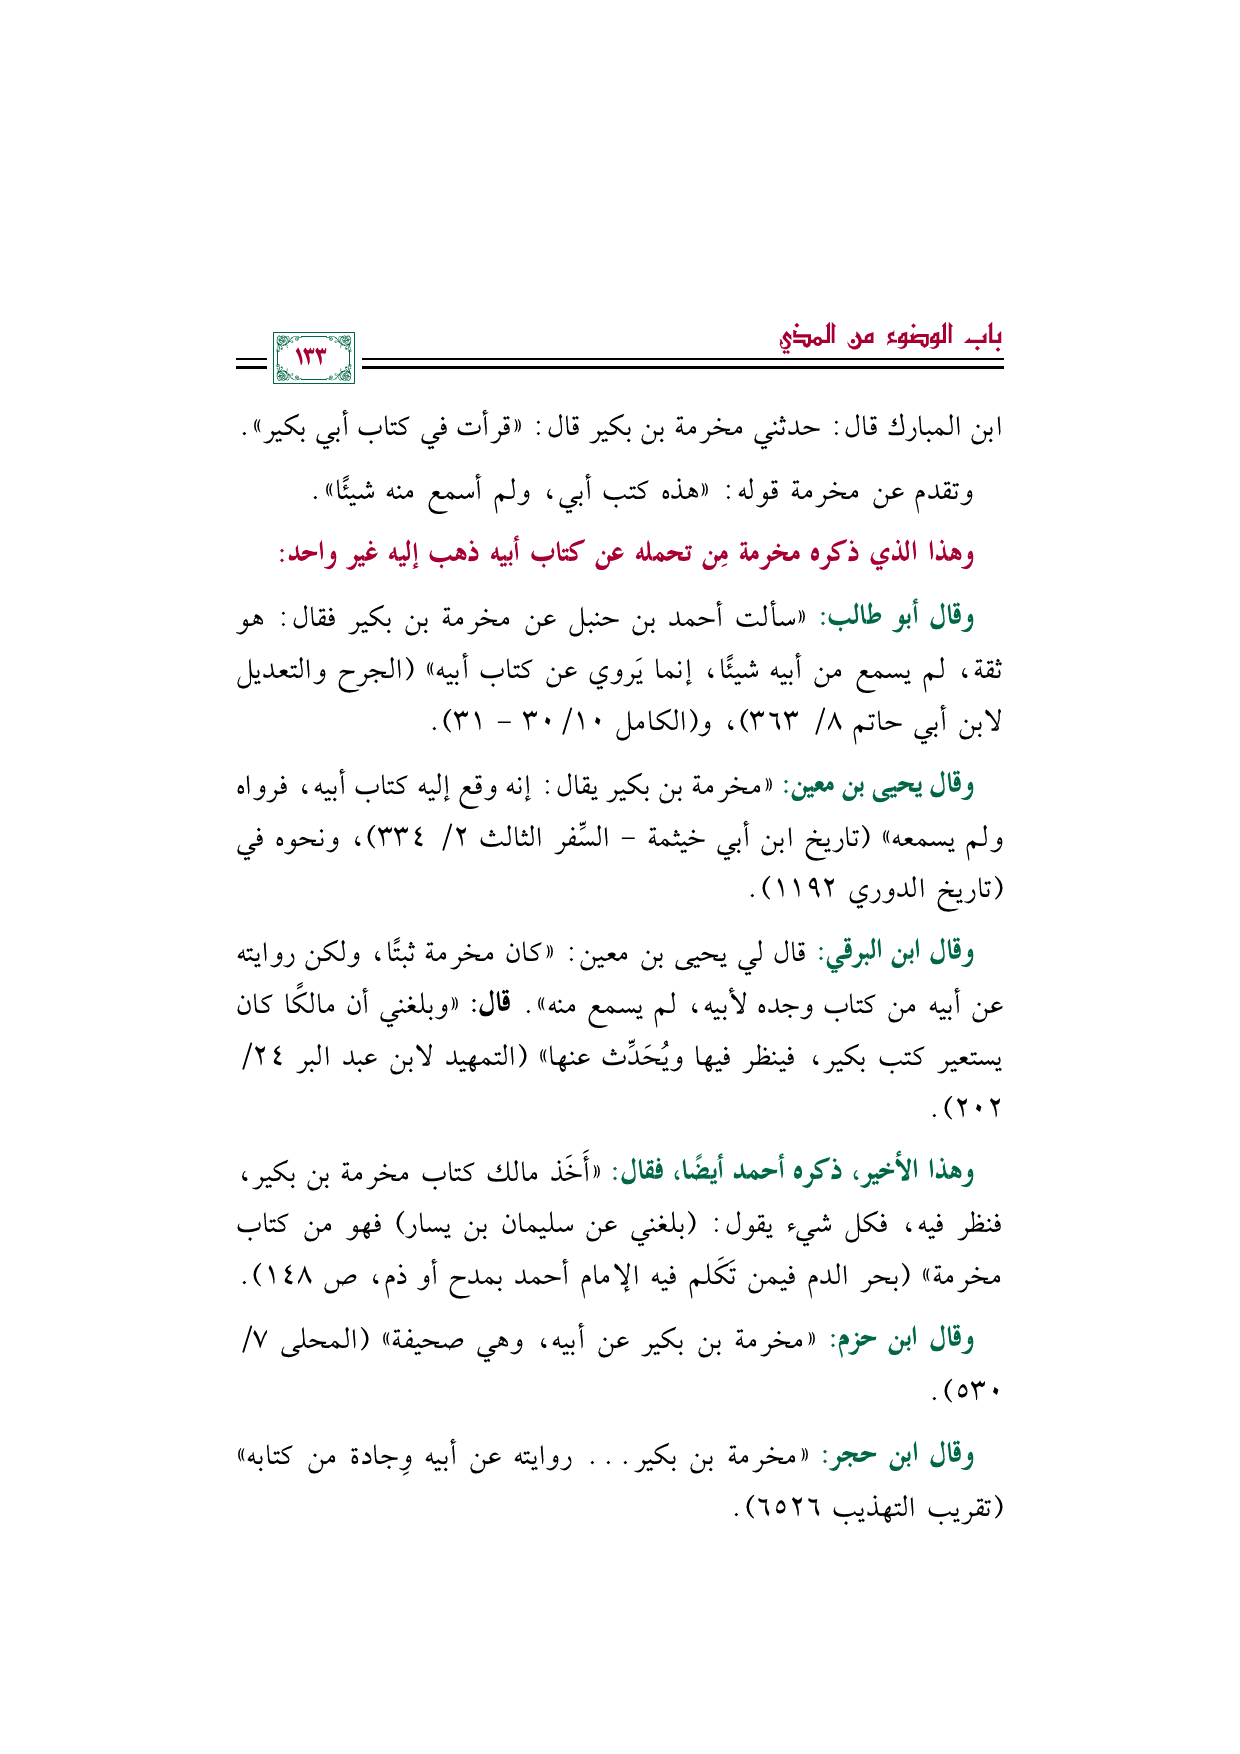 باب الوضوء من المذي
١٣٣
ابن المبارك قال: حدثني مخرمة بن بكير قال: «قرأت في كتاب أبي بكير».
وتقدم عن مخرمة قوله: «هذه كتب أبي، ولم أسمع منه شيئًا».
وهذا الذي ذكره مخرمة مِن تحمله عن كتاب أبيه ذهب إليه غير واحد:
وقال أبو طالب: «سألت أحمد بن حنبل عن مخرمة بن بكير فقال: هو
ثقة، لم يسمع من أبيه شيئًا، إنما يَروي عن كتاب أبيه» (الجرح والتعديل
لابن أبي حاتم ٨/ ٣٦٣)، و(الكامل ١٠/ ٣٠ – ٣١).
وقال يحيى بن معين: «مخرمة بن بكير يقال: إنه وقع إليه كتاب أبيه، فرواه
ولم يسمعه» (تاريخ ابن أبي خيثمة – السِّفر الثالث ٢/ ٣٣٤)، ونحوه في
(تاريخ الدوري ١١٩٢).
وقال ابن البرقي: قال لي يحيى بن معين: «كان مخرمة ثبتًا، ولكن روايته
عن أبيه من كتاب وجده لأبيه، لم يسمع منه». قال: «وبلغني أن مالكًا كان
يستعير كتب بكير، فينظر فيها ويُحَدِّث عنها» (التمهيد لابن عبد البر ٢٤/
٢٠٢).
وهذا الأخير، ذكره أحمد أيضًا، فقال: «أَخَذ مالك كتاب مخرمة بن بكير،
فنظر فيه، فكل شيء يقول: (بلغني عن سليمان بن يسار) فهو من كتاب
مخرمة» (بحر الدم فيمن تَكَلم فيه الإمام أحمد بمدح أو ذم، ص ١٤٨).
وقال ابن حزم: «مخرمة بن بكير عن أبيه، وهي صحيفة» (المحلى ٧/
٥٣٠).
وقال ابن حجر: «مخرمة بن بكير... روايته عن أبيه وِجادة من كتابه»
(تقريب التهذيب ٦٥٢٦).